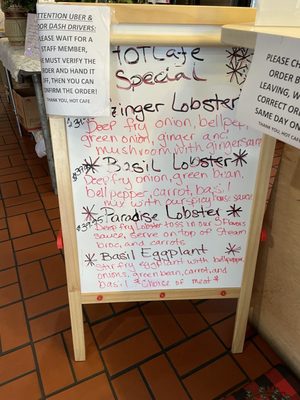 ATTENTION UBER &
DOOR DASH DRIVERS:
PLEASE WAIT FOR A
STAFF MEMBER,
MUST VERIFY THE
ORDER AND HAND IT
OFF, THEN YOU CAN
CONFIRM THE ORDER!
THANK YOU, HOT CAFE
HOT Cafe
Special
Ginger Lobster
Deep fry onion, bell pep,
green onion, ginger and
mushroom with ginger sauce
Basil Lobster
Deep fry onion, green bean,
bell pepper, carrot, basil
mix with our spicy basil sauce
Paradise Lobster
Deep fry Lobster toss in our 3 flavors
sauce, serve on top of Steam
broc, and carrots
Basil Eggplant
Stir fry eggplant with bell pepper,
onions, green bean, carrot, and
basil *Choice of meat*
PLEASE CH
ORDER B
LEAVING,
WANT
CORRECT OR
SAME DAY O
THANK YOU